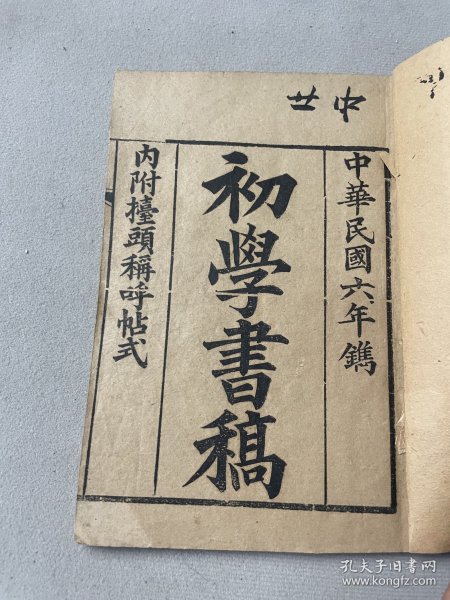 中廿
中華民國六年鐫
初學書稿
内附擡頭稱呼帖式
孔夫子旧书网
www.kongfz.com